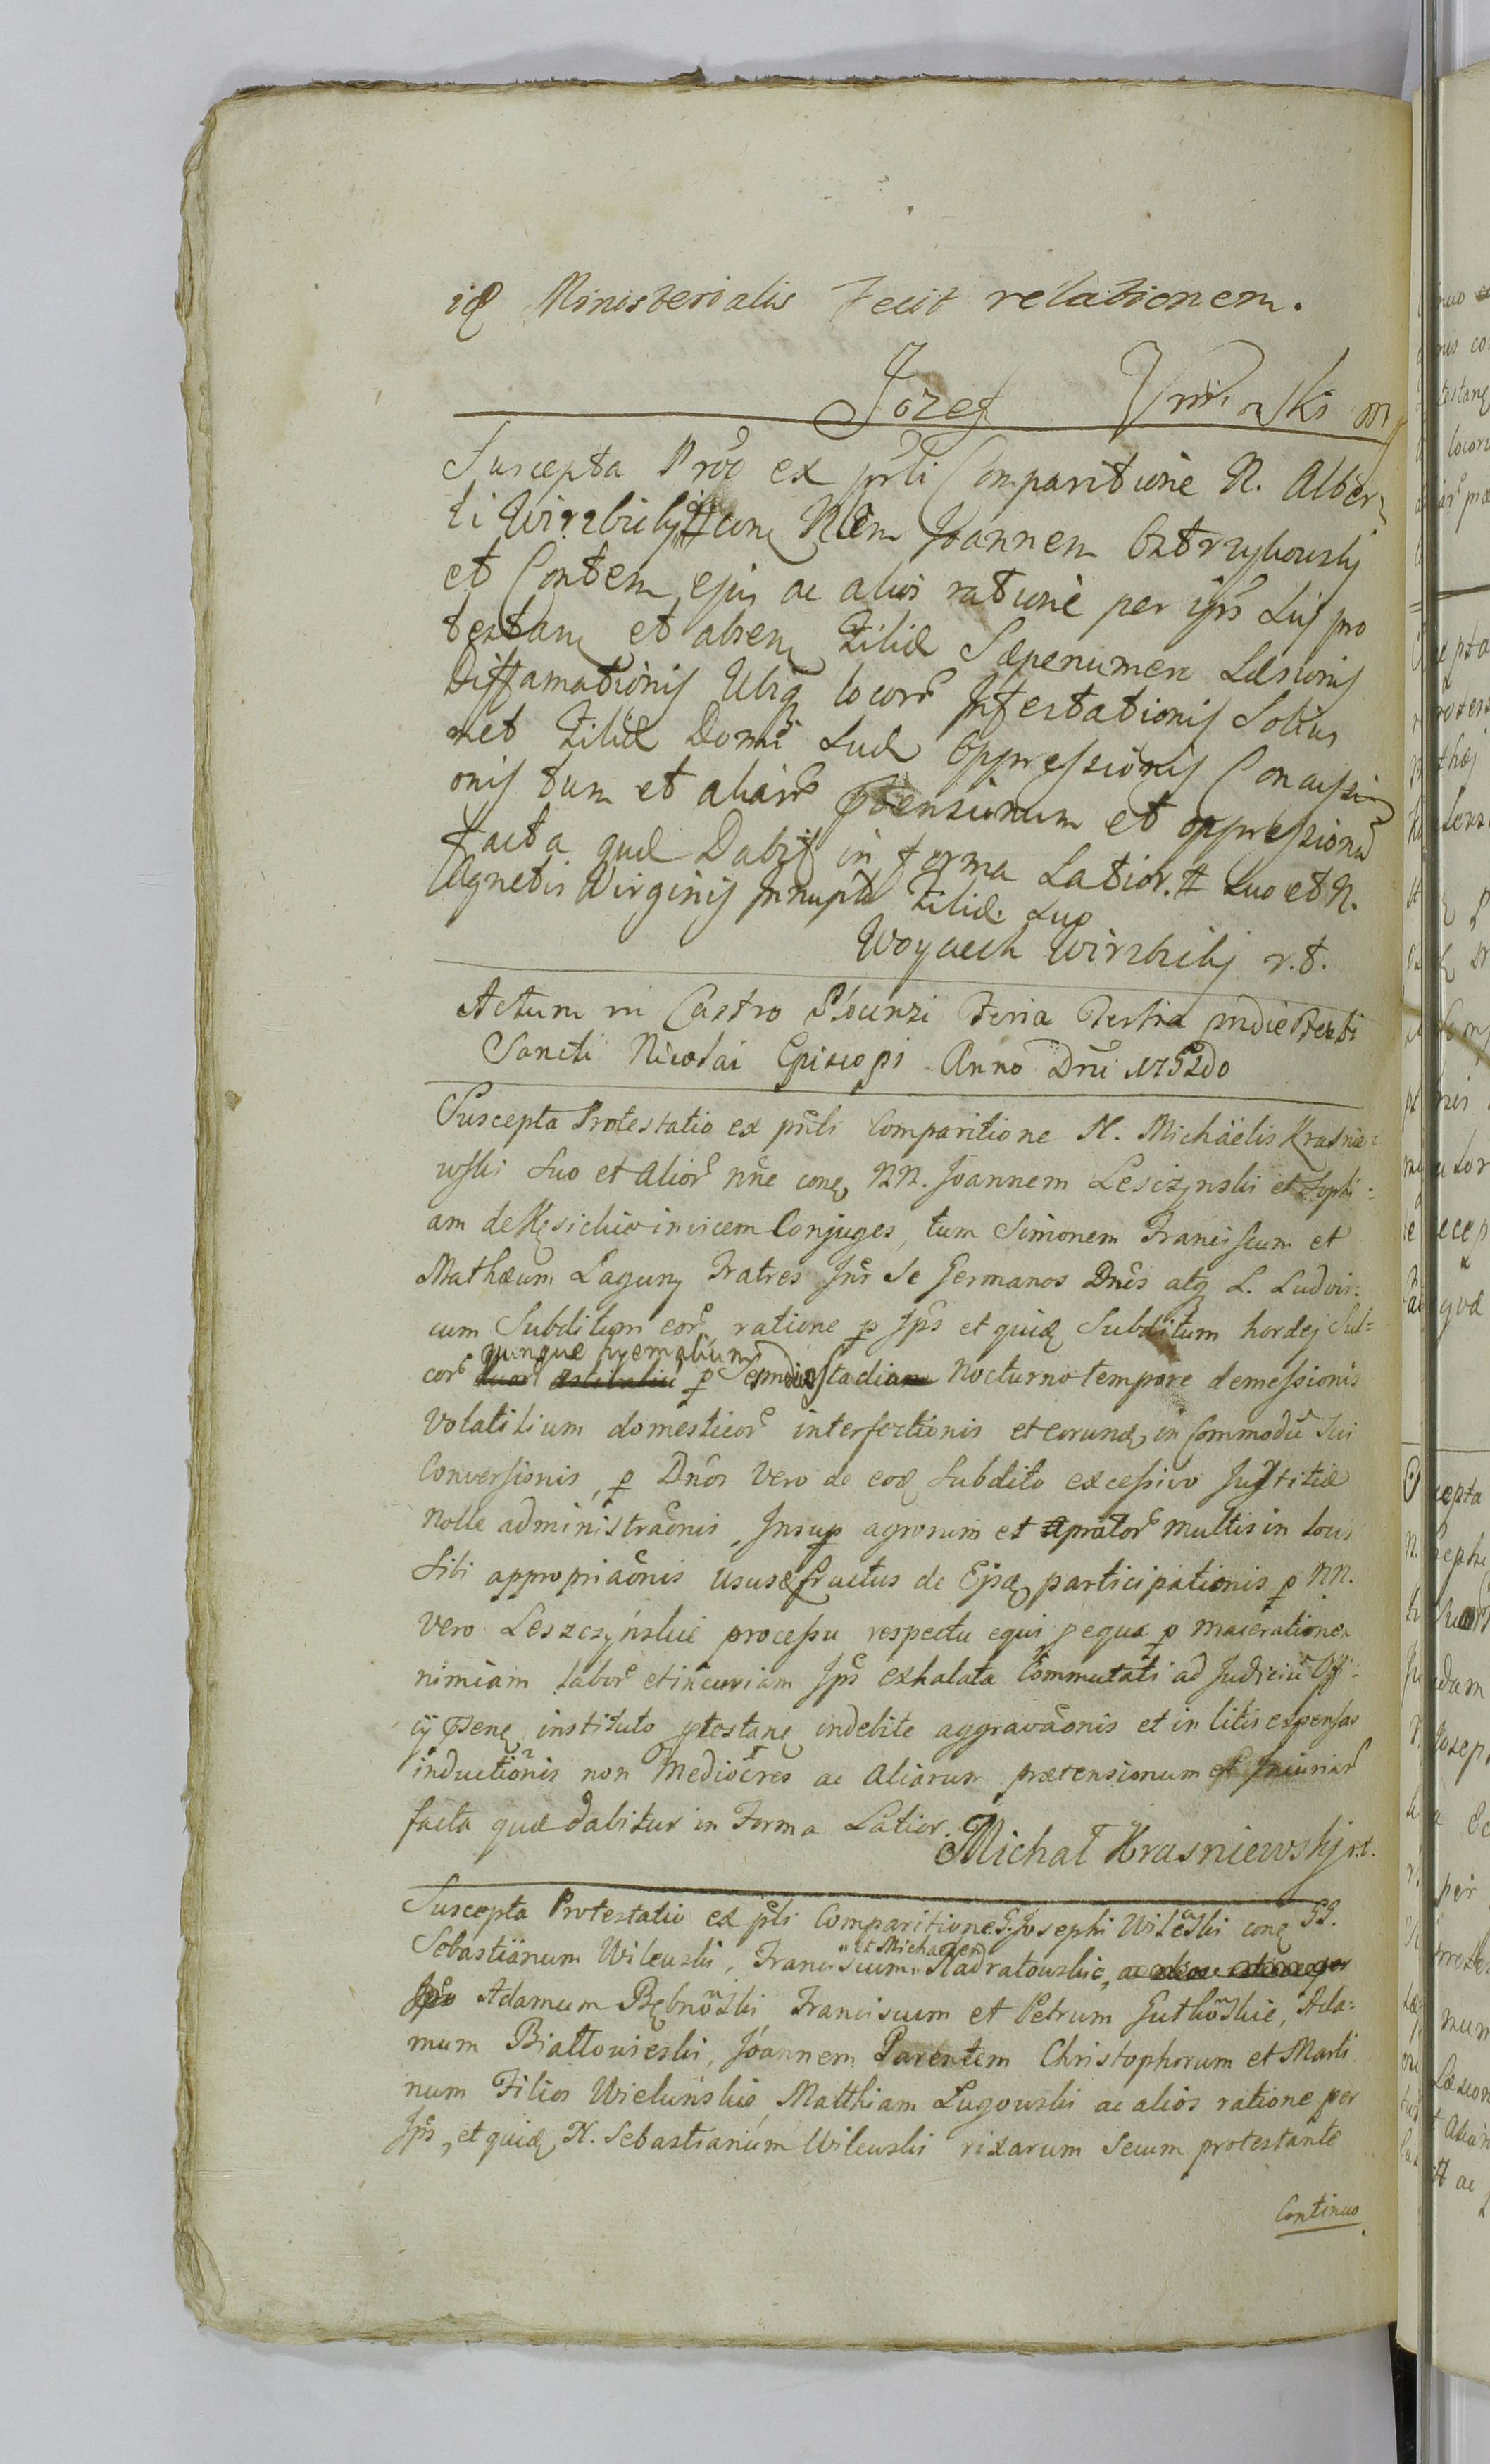 idē Ministerialis Fecit relationem.
Jozef m
Suscepta Proõ ex prñti Comparitione N. Alber=
ti Wirzbicky # conę Nlem Joannem Ostrzykowskj
et Contem ejus ac alios ratione per ipõs sui pro
testanę et absenę Filiæ Sæpenumero Læsionis
Diffamationis Ubiq locorũ Infestationis Solius
met Filiæ Domi suæ Oppressionis Concussi
onis tum et aliarũ Ptensionum et oppressionũ
facta quæ Dabit in forma Latior. # suo et N.
Agnetis Virginis Innuptæ Filiæ suo
Woyciech Wirzbickj r.t.
Actum in Castro Plocensi Feria Tertia pridie Festi
Sancti Nicolai Episcopi Anno Dni 1752do
Suscepta Protestatio ex pñti Comparitione N. Michaëlis Krasnie=
wski Suo et Aliorũ nñe conę NN. Joannem Lesczynski et Sophi=
am de Kęsickie invicem Conjuges, tum Simonem Franciscum et
Mathæum Laguny Fratres Intr se Germanos Dños atq L. Ludovi=
cum Subditum eorũ ratione p Ipõs et quidę Subditum hordej Sul=
corũ quinque hyemalium p stadia Nocturno tempore demessionis
Volatilium domesticorũ interfectionis et eorundę in Commodũ Sui
Conversionis, p Dños Vero de eodę Subdito excessivo Justitiæ
nolle administraõnis, Insup agrorum et pratorũ multis in locis
Sibi appropriaõnis Ususq fructus de Eisdę participationis p NN.
Vero Leszczyńskie processu respectu equi p maceratione
nimiam laborũ et incuriam Ipõs exhalata Commutati ad Judiciũ Offi=
cij Psenę instituto ptestanę indebite aggravaõnis et in litis expensas
inductionis non Mediocres ac Aliarum prætensionum et Iniuriarũ
facta quæ dabitur in Forma Latior.
Michał Krasniewskj r.t.
Suscepta Protestatio ex pñti Comparitione G. Josephi Wilewski conę GG.
Sebastiänum Wilewski, Franciscum et Michaelem Nadratowskie,
Adamum Bębnowski, Franciscum et Petrum Gutkowskie, Ada=
mum Białłowieski, Joannem Parentem Christophorum et Marti
num Filios Wieluńskie, Matthiam Lugowski ac alios ratione per
Ipõs, et quidę N. Sebastianum Wilewski rixarum Secum protestante
Continuo